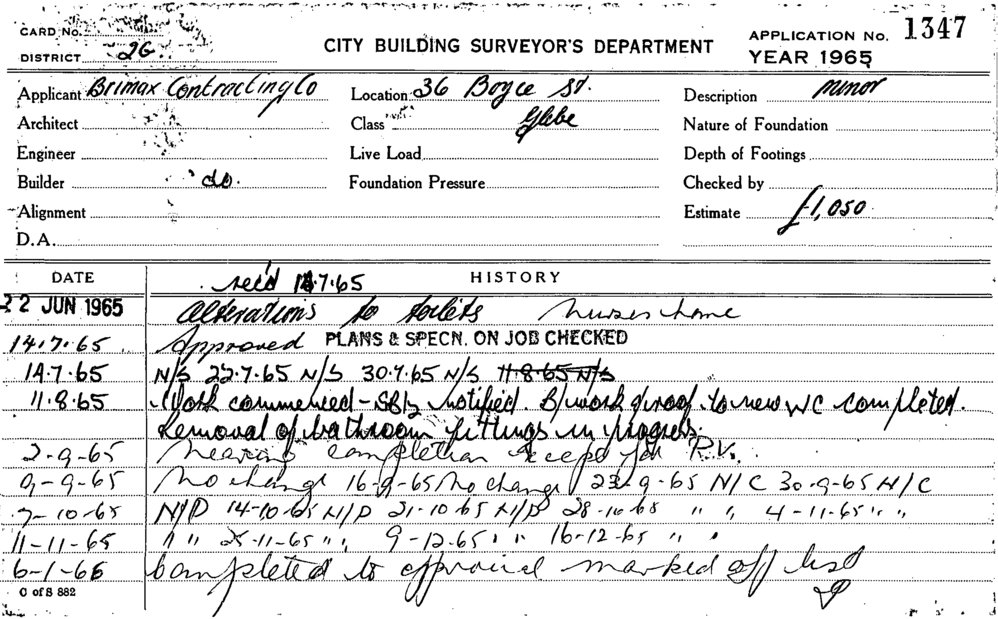 CARD No. APPLICATION No. 1347
DISTRICT 2G CITY BUILDING SURVEYOR'S DEPARTMENT YEAR 1965
Applicant Brimax Contracting Co Location 36 Boyce St. Description minor
Architect Class Glebe Nature of Foundation
Engineer Live Load Depth of Footings
Builder do. Foundation Pressure Checked by
Alignment Estimate £1,050
D.A.
DATE rec'd 14.7.65 HISTORY
22 JUN 1965 Alterations to toilets Nurses home
14.7.65 Approved PLANS & SPECN. ON JOB CHECKED
14.7.65 N/S 22.7.65 N/S 30.7.65 N/S 11-8-65 N/S
11.8.65 Work commenced - notified. B/work & roof to new WC completed.
Removal of bathroom fittings in progress.
2-9-65 Nearing completion except for R.V.
9-9-65 No change 16-9-65 No change 23-9-65 N/C 30-9-65 N/C
7-10-65 N/P 14-10-65 N/P 21-10-65 N/P 28-10-65 " " 4-11-65 " "
11-11-65 " " 25-11-65 " " 9-12-65 " " 16-12-65 " "
6-1-66 Completed to approval marked off list
C of S 882